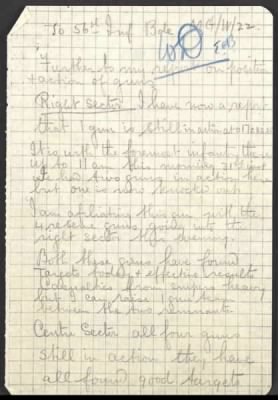 To 56th Inf Bde MG/11/22
Further to my on position
& action of guns
Right Sector I have now a report
that 1 gun is still in action at
It is with the foremost infantry there
up to 11 am this morning 31st inst
we had two guns in action here
but one is now knocked out
I am affiliating this gun with the
4 reserve guns going into the
right sector this evening.
Both these guns have found
targets today & effective results
Casualties from snipers heavy
but I can raise 1 gun team
between the two remnants
Centre Sector all four guns
still in action they have
all found good targets